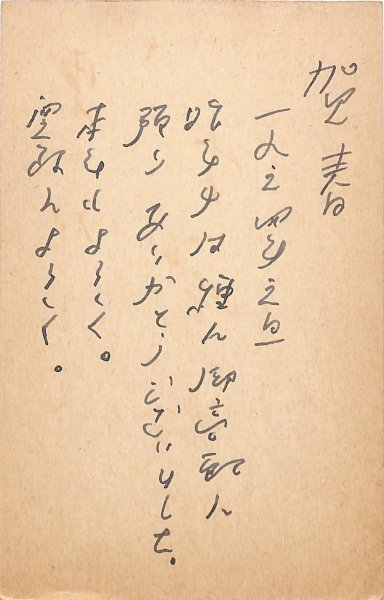 賀春
元旦
昨年中は種々御高配に
預りありがとうございました。
本年もよろしく。
よろしく。